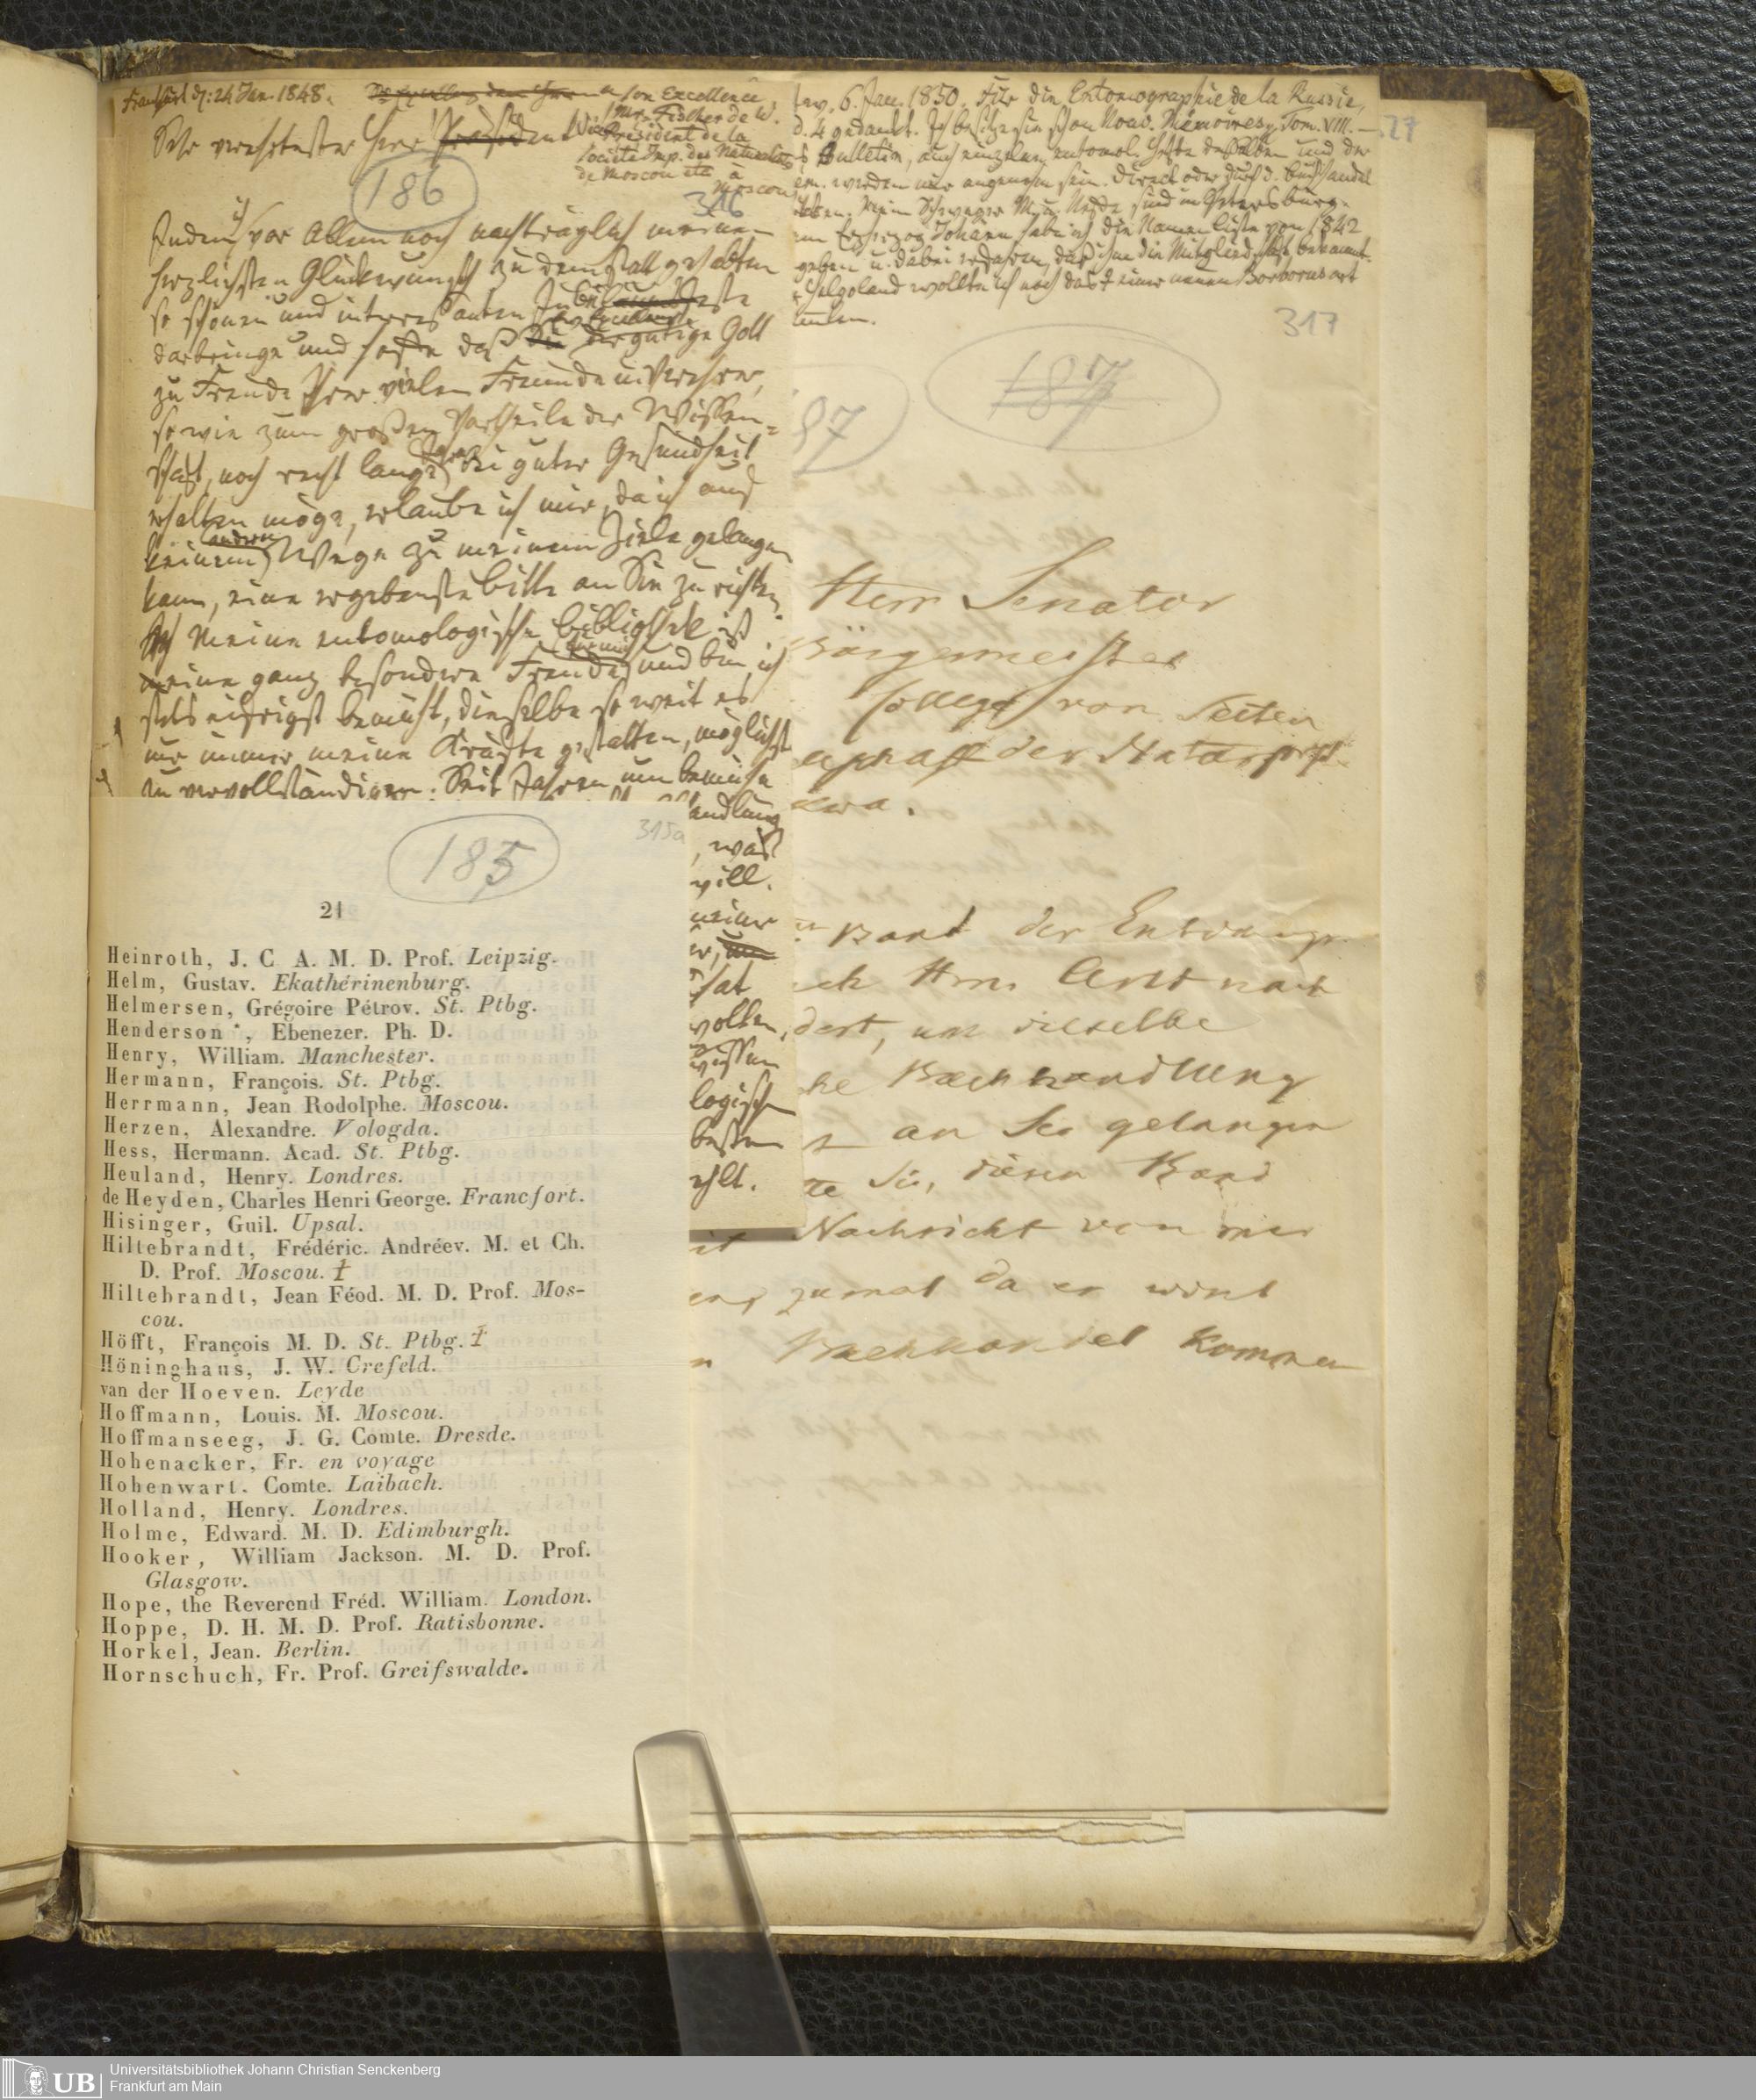 Frankfurt d: 24 Jan. 1848.
Son Excellence
Mr. Fischer de W.
Vice Président de la
Société Imp. des Naturalistes
de Moscou etc à
Moscou
Sehr verehrtester Herr Präsident
186
316
Indem ich vor Allem noch nachträglich meinen
herzlichsten Glückwunsch zu dem statt gehabten
so schönen und interessanten
darbringe und hoffe daß der gütige Gott
zu Freude Ihrer vielen Freunde u. Verehrer,
so wie zum großen Vortheile der Wissen=
schaft, noch recht lange bei guter Gesundheit
erhalten möge, erlaube ich mir, da ich auf
keinem andern Wege zu meinem Ziele gelangen
kann, eine ergebenste Bitte an Sie zu richten.
Meine entomologische Bibliothek ist
eine ganz besondere Freude und bin ich
stets eifrigst bemüht, dieselbe so weit es
nur immer meine Kräfte gestatten, möglichst
zu vervollständigen. Seit Jahren nun bemühe
andlung
, was
will.
meiner
hat
wollen,
wissen
logischen
besten
ehlt.
6. Jan. 1850. Für die Entomographie de la Russie,
d. 4 gedankt. Ich besitze sie schon Nouv. Mémoires Tom. VIII. —
Bulletin, auch einzelne entomol. Hefte desselben und der
werden mir angenehm sein. Direct oder durch d. Buchhandel
Mein Schwager M. u. sind in Petersburg.
Erzherzog Johann habe ich die Namenliste von 1842
geben u. dabei erfahren, daß ihm die Mitgliedschaft bekannt.
Helgoland wollte ich noch das einer neuen Borborusart
27
317
187
87
Herr Senator
Bürgermeister
College von Seiten
schaft der Naturforsch
kwa.
Band der Entomogr.
ich Hrn. Arnt nach
dert, um dieselbe
he Buchhandlung
an Sie gelangen
te Sie, diesen Band
it Nachricht von mir
en, zumal da er wird
n Buchhandel kommen
185
315a
21
Heinroth, J. C A. M. D. Prof. Leipzig.
Helm, Gustav. Ekathérinenburg.
Helmersen, Grégoire Pétrov. St. Ptbg.
Henderson, Ebenezer. Ph. D.
Henry, William. Manchester.
Hermann, François. St. Ptbg.
Herrmann, Jean Rodolphe. Moscou.
Herzen, Alexandre. Vologda.
Hess, Hermann. Acad. St. Ptbg.
Heuland, Henry. Londres.
de Heyden, Charles Henri George. Francfort.
Hisinger, Guil. Upsal.
Hiltebrandt, Frédéric. Andréev. M. et Ch.
D. Prof. Moscou. †
Hiltebrandt, Jean Féod. M. D. Prof. Mos-
cou.
Höfft, François M. D. St. Ptbg. †
Höninghaus, J. W. Crefeld.
van der Hoeven. Leyde
Hoffmann, Louis. M. Moscou.
Hoffmanseeg, J. G. Comte. Dresde.
Hohenacker, Fr. en voyage
Hohenwart. Comte. Laibach.
Holland, Henry. Londres.
Holme, Edward. M. D. Edimburgh.
Hooker, William Jackson. M. D. Prof.
Glasgow.
Hope, the Reverend Fréd. William. London.
Hoppe, D. H. M. D. Prof. Ratisbonne.
Horkel, Jean. Berlin.
Hornschuch, Fr. Prof. Greifswalde.
UB
Universitätsbibliothek Johann Christian Senckenberg
Frankfurt am Main